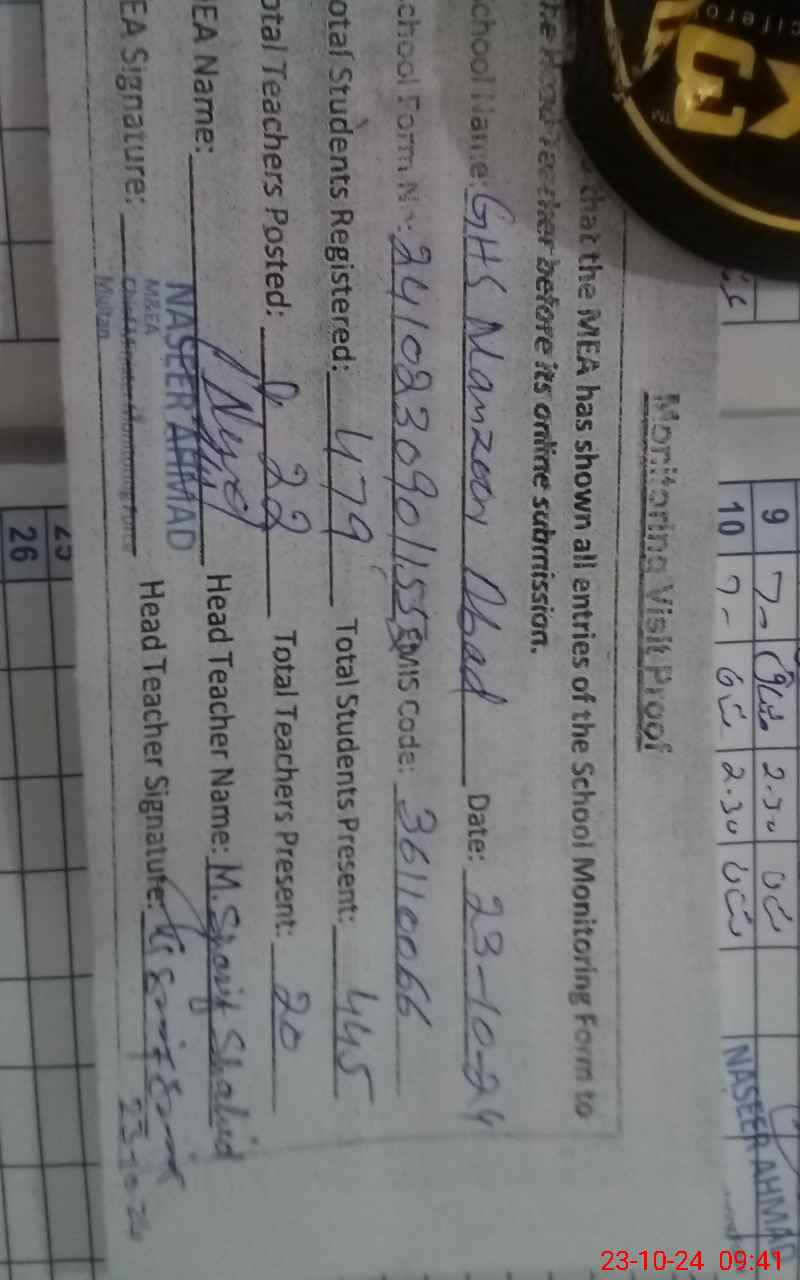 Monitoring Visit Proof
that the MEA has shown all entries of the School Monitoring Form to
he Head Teacher before its online submission.
chool Name: GHS Manzoor Abad Date: 23-10-24
chool Form No: 24102309011555 EMIS Code: 36110066
otal Students Registered: 479 Total Students Present: 445
otal Teachers Posted: 22 Total Teachers Present: 20
EA Name: NASEER AHMAD Head Teacher Name: M. Sharif Shahid
EA Signature: Head Teacher Signature:
M&EA
Chief Minister Monitoring Force
Multan
23-10-24
9 2.30
10 2.30
NASEER AHMAD
25
26
23-10-24 09:41